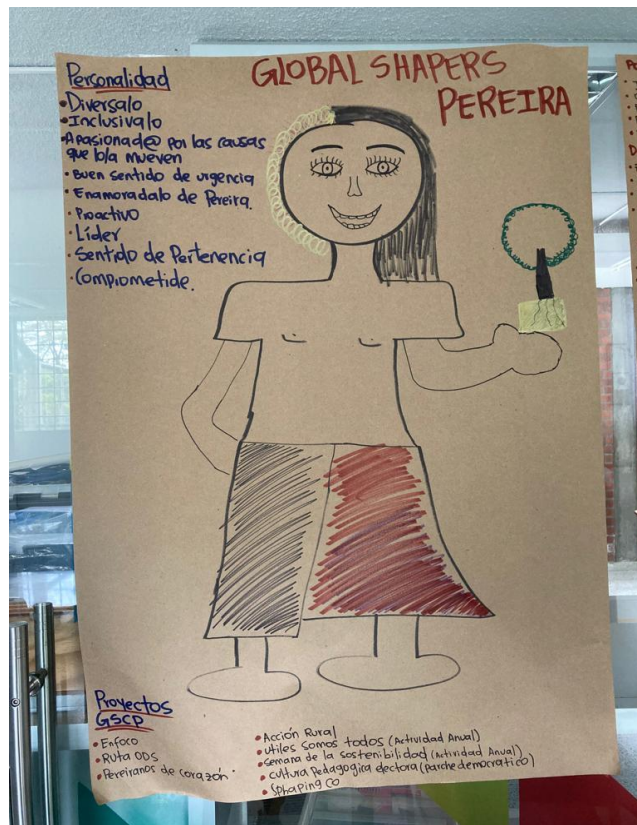 GLOBAL SHAPERS
PEREIRA
Personalidad
• Diversalo
• Inclusivalo
• Apasionad@ por las causas
que lo/a mueven
• Buen sentido de urgencia
• Enamoradalo de Pereira.
• Proactivo
• Líder
• Sentido de Pertenencia
• Comprometide.
Proyectos
GSCP
• Enfoco
• Ruta ODS
• Pereiranos de corazón.
• Acción Rural
• Utiles somos todos (Actividad Anual)
• Semana de la sostenibilidad (Actividad Anual)
• cultura Pedagogica electora (parche democratico)
• Sphaping CO